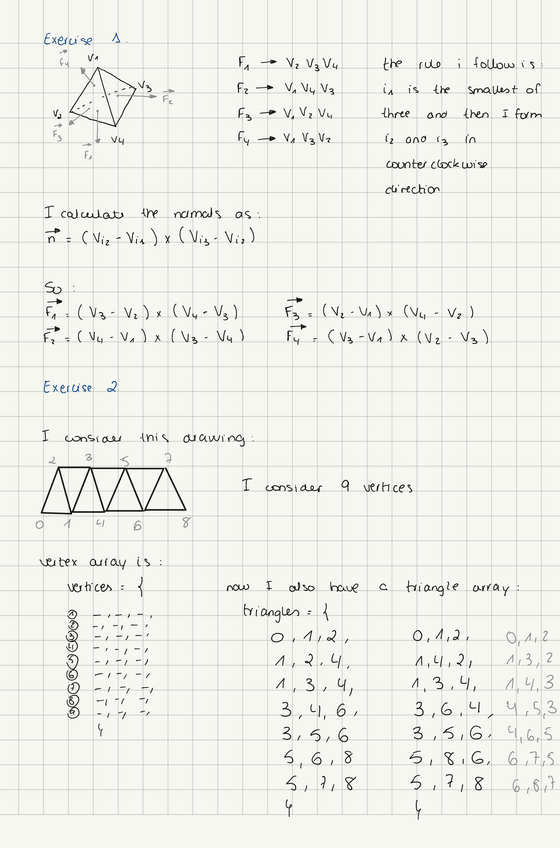 Exercise 1.
V1
F4
V3
F2
V2
F3
F1
V4
F1 → V2 V3 V4
F2 → V1 V4 V3
F3 → V1 V2 V4
F4 → V1 V3 V2
the rule i follow is:
i1 is the smallest of
three and then I form
i2 and i3 in
counterclockwise
direction
I calculate the normals as:
n = (Vi2 - Vi1) × (Vi3 - Vi2)
So:
F1 = (V3 - V2) × (V4 - V3)
F2 = (V4 - V1) × (V3 - V4)
F3 = (V2 - V1) × (V4 - V2)
F4 = (V3 - V1) × (V2 - V3)
Exercise 2
I consider this drawing:
2 3 5 7
0 1 4 6 8
I consider 9 vertices
vertex array is:
vertices = {
1 -,-,-,
2 -,-,-,
3 -,-,-,
4 -,-,-,
5 -,-,-,
6 -,-,-,
7 -,-,-,
8 -,-,-,
9 -,-,-,
}
now I also have a triangle array:
triangles = {
0,1,2,
1,2,4,
1,3,4,
3,4,6,
3,5,6
5,6,8
5,7,8
}
0,1,2,
1,4,2,
1,3,4,
3,6,4,
3,5,6.
5,8,6,
5,7,8
}
0,1,2
1,3,2
1,4,3
4,5,3
4,6,5
6,7,5
6,8,7